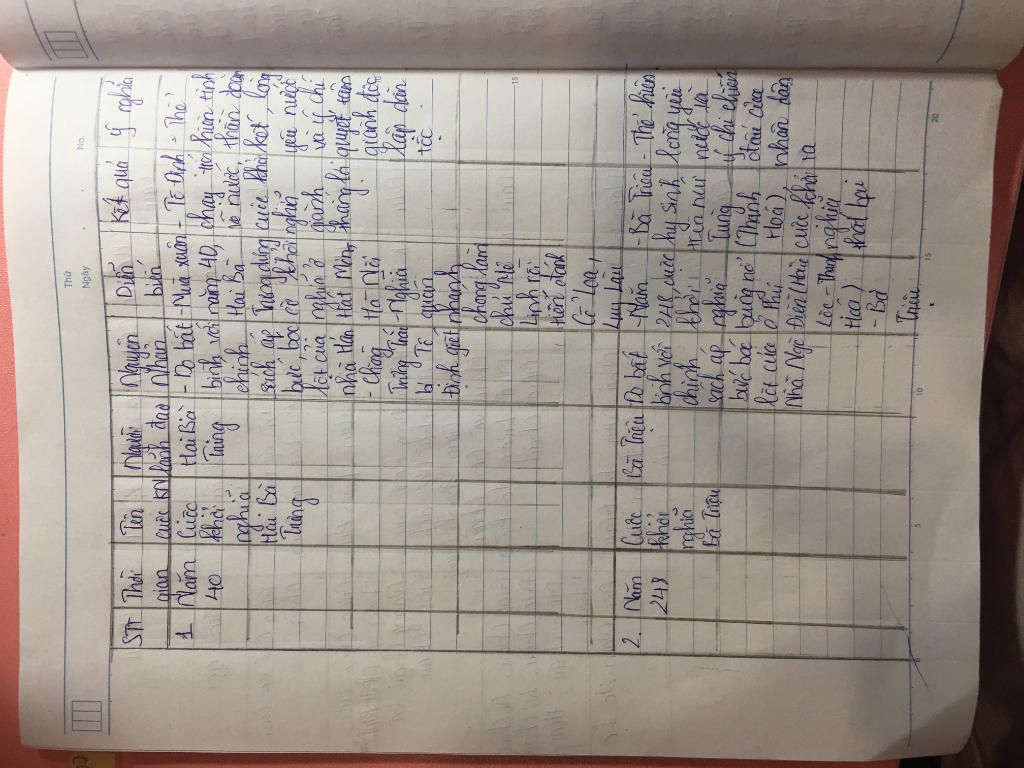 Thứ
Ngày
No.
STT
Thời
gian
Tên
cuộc KN
Người
lãnh đạo
Nguyên
Nhân
Diễn
biến
Kết quả
Ý nghĩa
1
Năm
40
Cuộc
khởi
nghĩa
Hai Bà
Trưng
Hai Bà
Trưng
- Do bất
bình với
chính
sách áp
bức, bóc
lột của
nhà Hán
- Chồng
Trưng Trắc
bị Tô
Định giết
- Mùa xuân
năm 40,
Hai Bà
Trưng dựng
cờ khởi
nghĩa ở
Hát Môn,
Hà Nội
- Nghĩa
quân
nhanh
chóng làm
chủ Mê
Linh rồi
tiến đánh
Cổ Loa,
Luy Lâu
- Tô Định
chạy
về nước,
cuộc khởi
nghĩa
giành
thắng lợi.
- Thể
hiện tinh
thần đoàn
kết, lòng
yêu nước
và ý chí
quyết tâm
giành độc
lập dân
tộc.
2.
Năm
248
Cuộc
khởi
nghĩa
Bà Triệu
Bà Triệu
Do bất
bình với
chính
sách áp
bức bóc
lột của
Nhà Ngô
- Năm
248, cuộc
khởi
nghĩa
bùng nổ
ở Phú
Điền (Hậu
Lộc - Thanh
Hóa)
- Bà
Triệu
- Bà Triệu
hy sinh
trên núi
Tùng
(Thanh
Hóa)
cuộc khởi
nghĩa
thất bại
- Thể hiện
lòng yêu
nước và
ý chí chiến
đấu của
nhân dân
ta
5
10
15
20
15